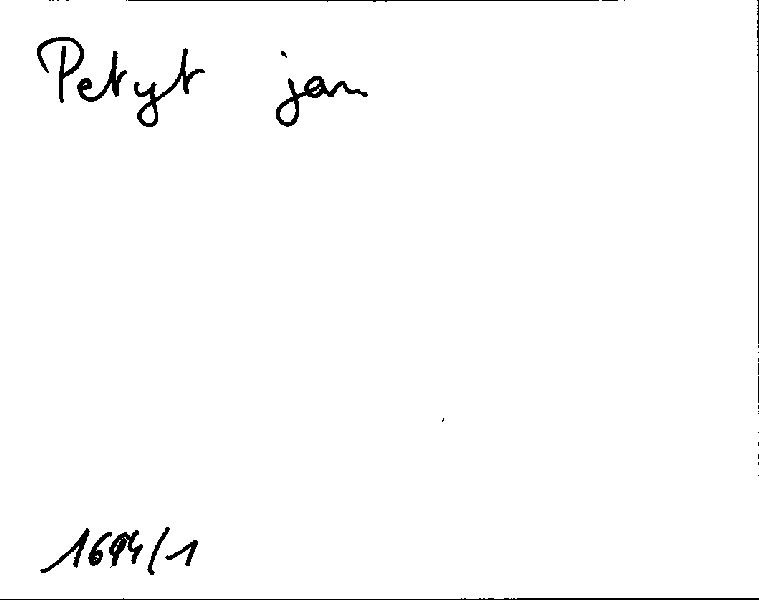 Petyt jan
1694/1